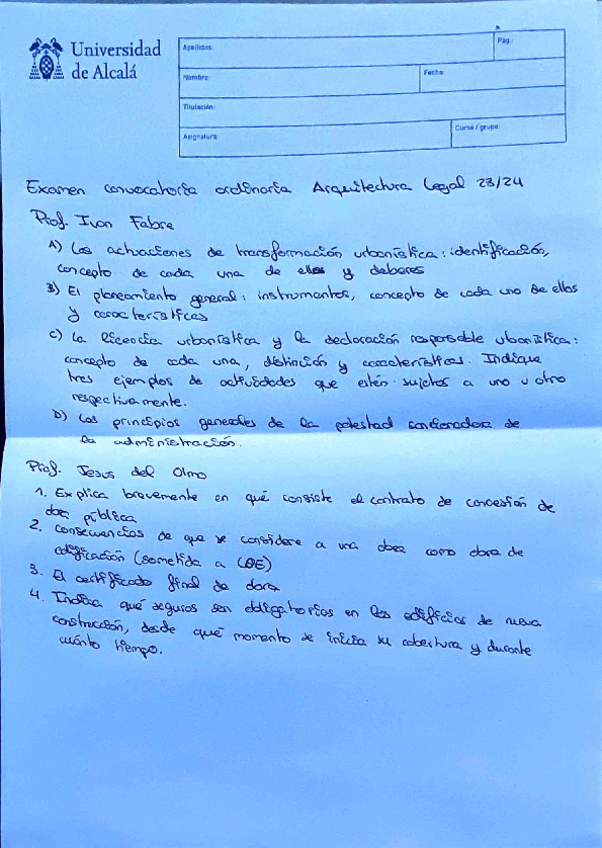 Universidad
de Alcalá
Apellidos:
Pág.:
Nombre:
Fecha:
Titulación:
Asignatura:
Curso / grupo:
Examen convocatoria ordinaria Arquitectura Legal 23/24
Prof. Ivan Fabre
A) Las actuaciones de transformación urbanística: identificación,
concepto de cada una de ellas y deberes
B) El planeamiento general: instrumentos, concepto de cada uno de ellos
y características
C) La licencia urbanística y la declaración responsable urbanística:
concepto de cada una, distinción y características. Indique
tres ejemplos de actividades que estén sujetos a uno u otro
respectivamente.
D) Los principios generales de la potestad sancionadora de
la administración.
Prof. Jesus del Olmo
1. Explica brevemente en qué consiste el contrato de concesión de
obra pública
2. Consecuencias de que se considere a una obra como obra de
edificación (sometida a LOE)
3. El certificado final de obra
4. Indica qué seguros son obligatorios en los edificios de nueva
construcción, desde qué momento se inicia su cobertura y durante
cuánto tiempo.